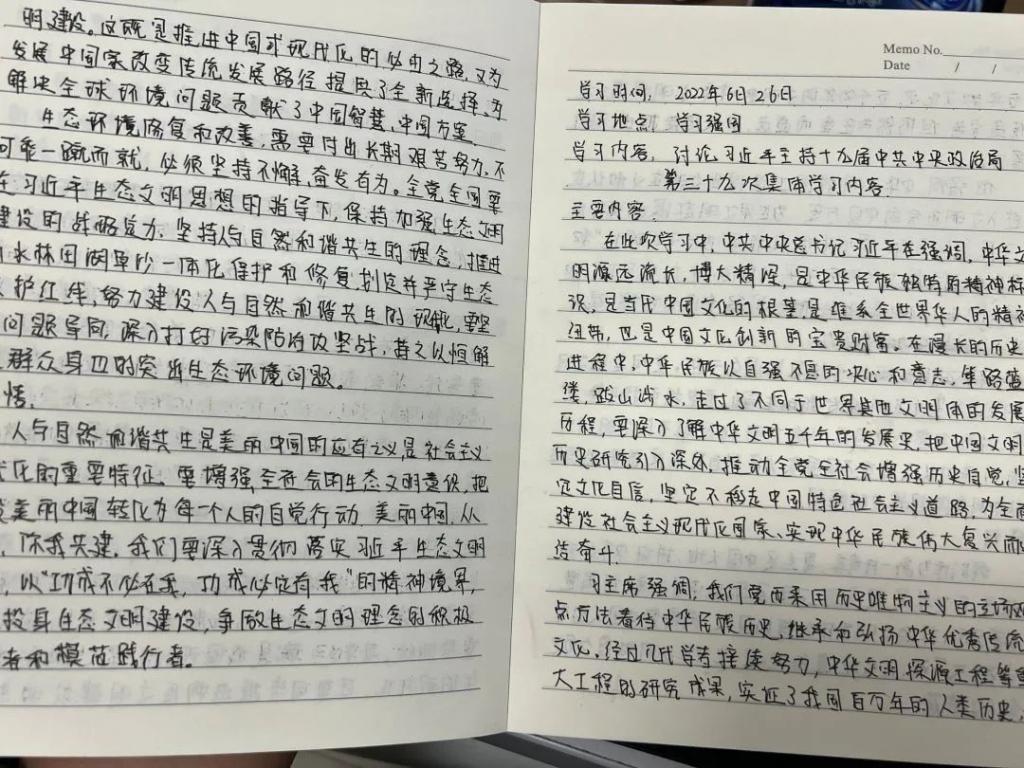 明建设。这既是推进中国式现代化的必由之路,又为
发展中国家改变传统发展路径提供了全新选择,为
解决全球环境问题贡献了中国智慧、中国方案.
生态环境修复和改善,需要付出长期艰苦努力,不
可能一蹴而就,必须坚持不懈,奋发有为。全党全国要
在习近平生态文明思想的指导下,保持加强生态文明
建设的战略定力,坚持人与自然和谐共生的理念,推进
水林田湖草沙一体化保护和修复,划定并严守生态
护红线,努力建设人与自然和谐共生的现代化,要坚
问题导向,深入打好污染防治攻坚战,持之以恒解
群众身边的突出生态环境问题。
情.
人与自然和谐共生是美丽中国的应有之义,是社会主义
代化的重要特征。要增强全社会的生态文明意识,把
美丽中国转化为每一个人的自觉行动.美丽中国,从
,你我共建.我们要深入贯彻落实习近平生态文明
,以“功成不必在我,功成必定有我”的精神境界,
投身生态文明建设,争做生态文明理念的积极
者和模范践行者。
Memo No.
Date / /
学习时间: 2022年6日26日
学习地点: 学习强国
学习内容:讨论习近平主持十九届中共中央政治局
第三十九次集体学习内容.
主要内容:
在此次学习中,中共中央总书记习近平在强调,中华文
明源远流长,博大精深,是中华民族独特的精神标
识,是当代中国文化的根基,是维系全世界华人的精神
纽带,也是中国文化创新的宝贵财富。在漫长的历史
进程中,中华民族以自强不息的决心和意志,筚路蓝
缕,跋山涉水,走过了不同于世界其他文明体的发展
历程,要深入了解中华文明五千年的发展史,把中国文明
历史研究引入深处,推动全党全社会增强历史自觉,坚
定文化自信,坚定不移走中国特色社会主义道路,为全面
建设社会主义现代化国家、实现中华民族伟大复兴而
奋斗.
习主席强调,我们党要采用历史唯物主义的立场观
点方法看待中华民族历史,继承和弘扬中华优秀传统
文化。经过几代学者接续努力,中华文明探源工程等重
大工程的研究成果,实证了我国百万年的人类历史,